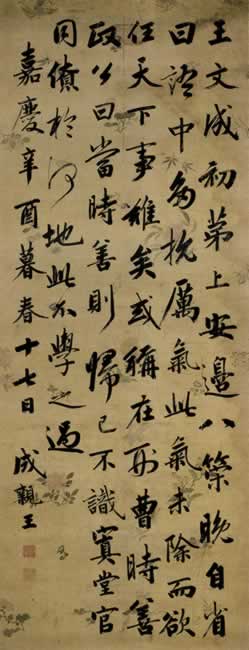 王文成初苐上安邊八策晚自省
曰語中多抗厲氣此氣未除而欲
任天下事難矣或稱在刑曹時善
政公曰當時善則歸己不識寘堂官
同僚於何地此不學之過
嘉慶辛酉暮春十七日 成親王